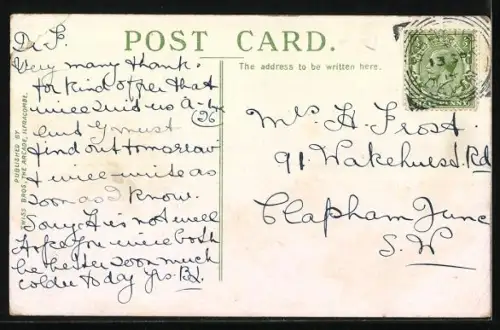 POST CARD.
The address to be written here.
PUBLISHED BY
TWISS BROS., THE ARCADE, ILFRACOMBE.
D. F.
Very many thanks
for kind offer that
will suit us
(26
but I must
find out tomorrow
& will write as
soon as I know.
Sorry H is not well
hope you will both
be better soon much
colder today Yrs.
Mrs H. Frost.
91. Wakehurst Rd
Clapham Junc
S. W